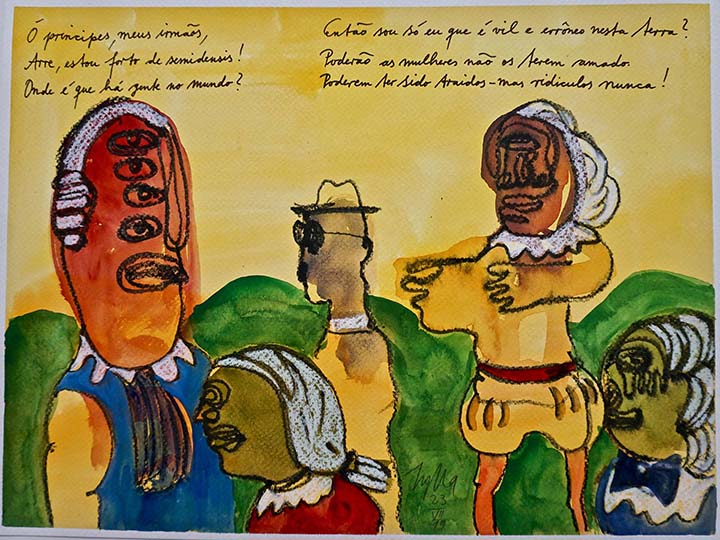 Ó principes, meus irmãos,
Arre, estou farto de semideusis!
Onde é que há gente no mundo?
Então sou só eu que é vil e errôneo nesta terra?
Poderão as mulheres não os terem amado.
Poderem ter sido traidos - mas ridiculos nunca!
23
VII